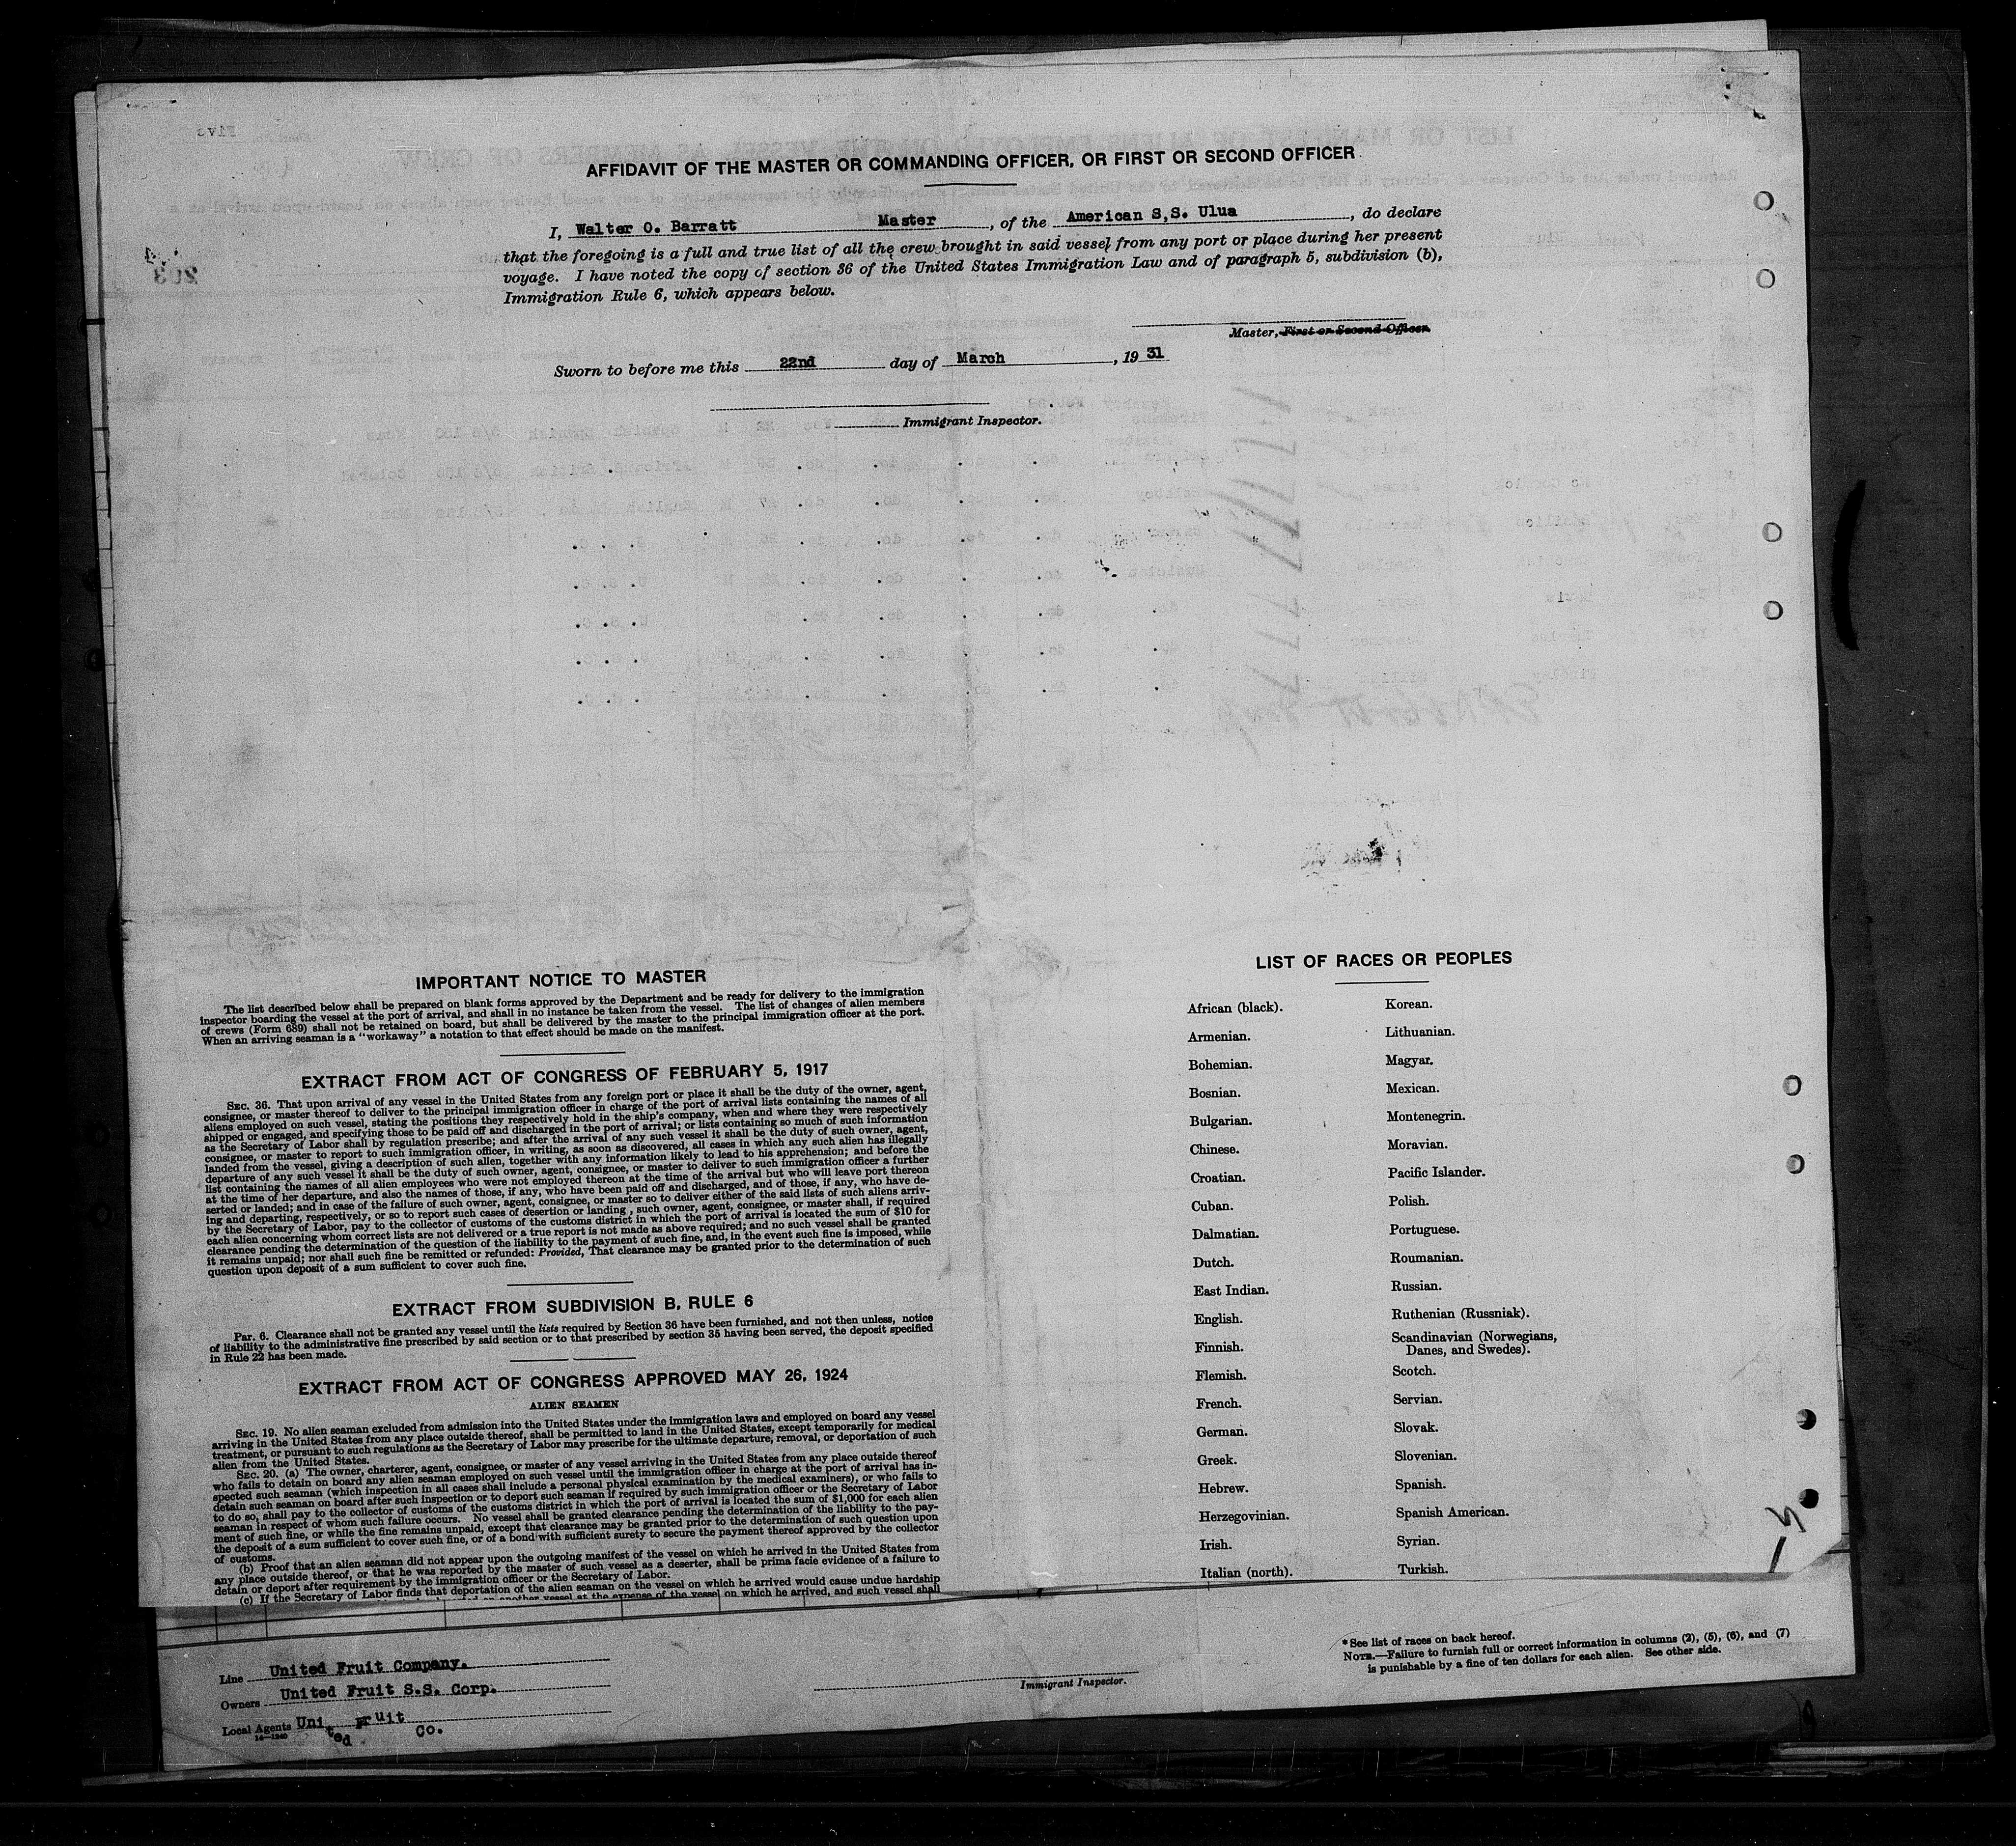 AFFIDAVIT OF THE MASTER OR COMMANDING OFFICER, OR FIRST OR SECOND OFFICER
I, Walter O. Barratt Master, of the American S,S. Ulua, do declare
that the foregoing is a full and true list of all the crew brought in said vessel from any port or place during her present
voyage. I have noted the copy of section 36 of the United States Immigration Law and of paragraph 5, subdivision (b),
Immigration Rule 6, which appears below.
Master, First or Second Officer.
Sworn to before me this 22nd day of March, 19 31
Immigrant Inspector.
IMPORTANT NOTICE TO MASTER
The list described below shall be prepared on blank forms approved by the Department and be ready for delivery to the immigration
inspector boarding the vessel at the port of arrival, and shall in no instance be taken from the vessel. The list of changes of alien members
of crews (Form 689) shall not be retained on board, but shall be delivered by the master to the principal immigration officer at the port.
When an arriving seaman is a "workaway" a notation to that effect should be made on the manifest.
EXTRACT FROM ACT OF CONGRESS OF FEBRUARY 5, 1917
SEC. 36. That upon arrival of any vessel in the United States from any foreign port or place it shall be the duty of the owner, agent,
consignee, or master thereof to deliver to the principal immigration officer in charge of the port of arrival lists containing the names of all
aliens employed on such vessel, stating the positions they respectively hold in the ship's company, when and where they were respectively
shipped or engaged, and specifying those to be paid off and discharged in the port of arrival; or lists containing so much of such information
as the Secretary of Labor shall by regulation prescribe; and after the arrival of any such vessel it shall be the duty of such owner, agent,
consignee, or master to report to such immigration officer, in writing, as soon as discovered, all cases in which any such alien has illegally
landed from the vessel, giving a description of such alien, together with any information likely to lead to his apprehension; and before the
departure of any such vessel it shall be the duty of such owner, agent, consignee, or master to deliver to such immigration officer a further
list containing the names of all alien employees who were not employed thereon at the time of the arrival but who will leave port thereon
at the time of her departure, and also the names of those, if any, who have been paid off and discharged, and of those, if any, who have de-
serted or landed; and in case of the failure of such owner, agent, consignee, or master so to deliver either of the said lists of such aliens arriv-
ing and departing, respectively, or so to report such cases of desertion or landing, such owner, agent, consignee, or master shall, if required
by the Secretary of Labor, pay to the collector of customs of the customs district in which the port of arrival is located the sum of $10 for
each alien concerning whom correct lists are not delivered or a true report is not made as above required; and no such vessel shall be granted
clearance pending the determination of the question of the liability to the payment of such fine, and, in the event such fine is imposed, while
it remains unpaid; nor shall such fine be remitted or refunded: Provided, That clearance may be granted prior to the determination of such
question upon deposit of a sum sufficient to cover such fine.
EXTRACT FROM SUBDIVISION B, RULE 6
Par. 6. Clearance shall not be granted any vessel until the lists required by Section 36 have been furnished, and not then unless, notice
of liability to the administrative fine prescribed by said section or to that prescribed by section 35 having been served, the deposit specified
in Rule 22 has been made.
EXTRACT FROM ACT OF CONGRESS APPROVED MAY 26, 1924
ALIEN SEAMEN
SEC. 19. No alien seaman excluded from admission into the United States under the immigration laws and employed on board any vessel
arriving in the United States from any place outside thereof, shall be permitted to land in the United States, except temporarily for medical
treatment, or pursuant to such regulations as the Secretary of Labor may prescribe for the ultimate departure, removal, or deportation of such
alien from the United States.
SEC. 20. (a) The owner, charterer, agent, consignee, or master of any vessel arriving in the United States from any place outside thereof
who fails to detain on board any alien seaman employed on such vessel until the immigration officer in charge at the port of arrival has in-
spected such seaman (which inspection in all cases shall include a personal physical examination by the medical examiners), or who fails to
detain such seaman on board after such inspection or to deport such seaman if required by such immigration officer or the Secretary of Labor
to do so, shall pay to the collector of customs of the customs district in which the port of arrival is located the sum of $1,000 for each alien
seaman in respect of whom such failure occurs. No vessel shall be granted clearance pending the determination of the liability to the pay-
ment of such fine, or while the fine remains unpaid, except that clearance may be granted prior to the determination of such question upon
the deposit of a sum sufficient to cover such fine, or of a bond with sufficient surety to secure the payment thereof approved by the collector
of customs.
(b) Proof that an alien seaman did not appear upon the outgoing manifest of the vessel on which he arrived in the United States from
any place outside thereof, or that he was reported by the master of such vessel as a deserter, shall be prima facie evidence of a failure to
detain or deport after requirement by the immigration officer or the Secretary of Labor.
(c) If the Secretary of Labor finds that deportation of the alien seaman on the vessel on which he arrived would cause undue hardship
on another vessel at the expense of the vessel on which he arrived, and such vessel shall
LIST OF RACES OR PEOPLES
African (black).
Armenian.
Bohemian.
Bosnian.
Bulgarian.
Chinese.
Croatian.
Cuban.
Dalmatian.
Dutch.
East Indian.
English.
Finnish.
Flemish.
French.
German.
Greek.
Hebrew.
Herzegovinian.
Irish.
Italian (north).
Korean.
Lithuanian.
Magyar.
Mexican.
Montenegrin.
Moravian.
Pacific Islander.
Polish.
Portuguese.
Roumanian.
Russian.
Ruthenian (Russniak).
Scandinavian (Norwegians,
Danes, and Swedes).
Scotch.
Servian.
Slovak.
Slovenian.
Spanish.
Spanish American.
Syrian.
Turkish.
Line United Fruit Company.
Owners United Fruit S.S. Corp.
Local Agents United Fruit Co.
14—1240
Immigrant Inspector.
*See list of races on back hereof.
NOTE.—Failure to furnish full or correct information in columns (2), (5), (6), and (7)
is punishable by a fine of ten dollars for each alien. See other side.